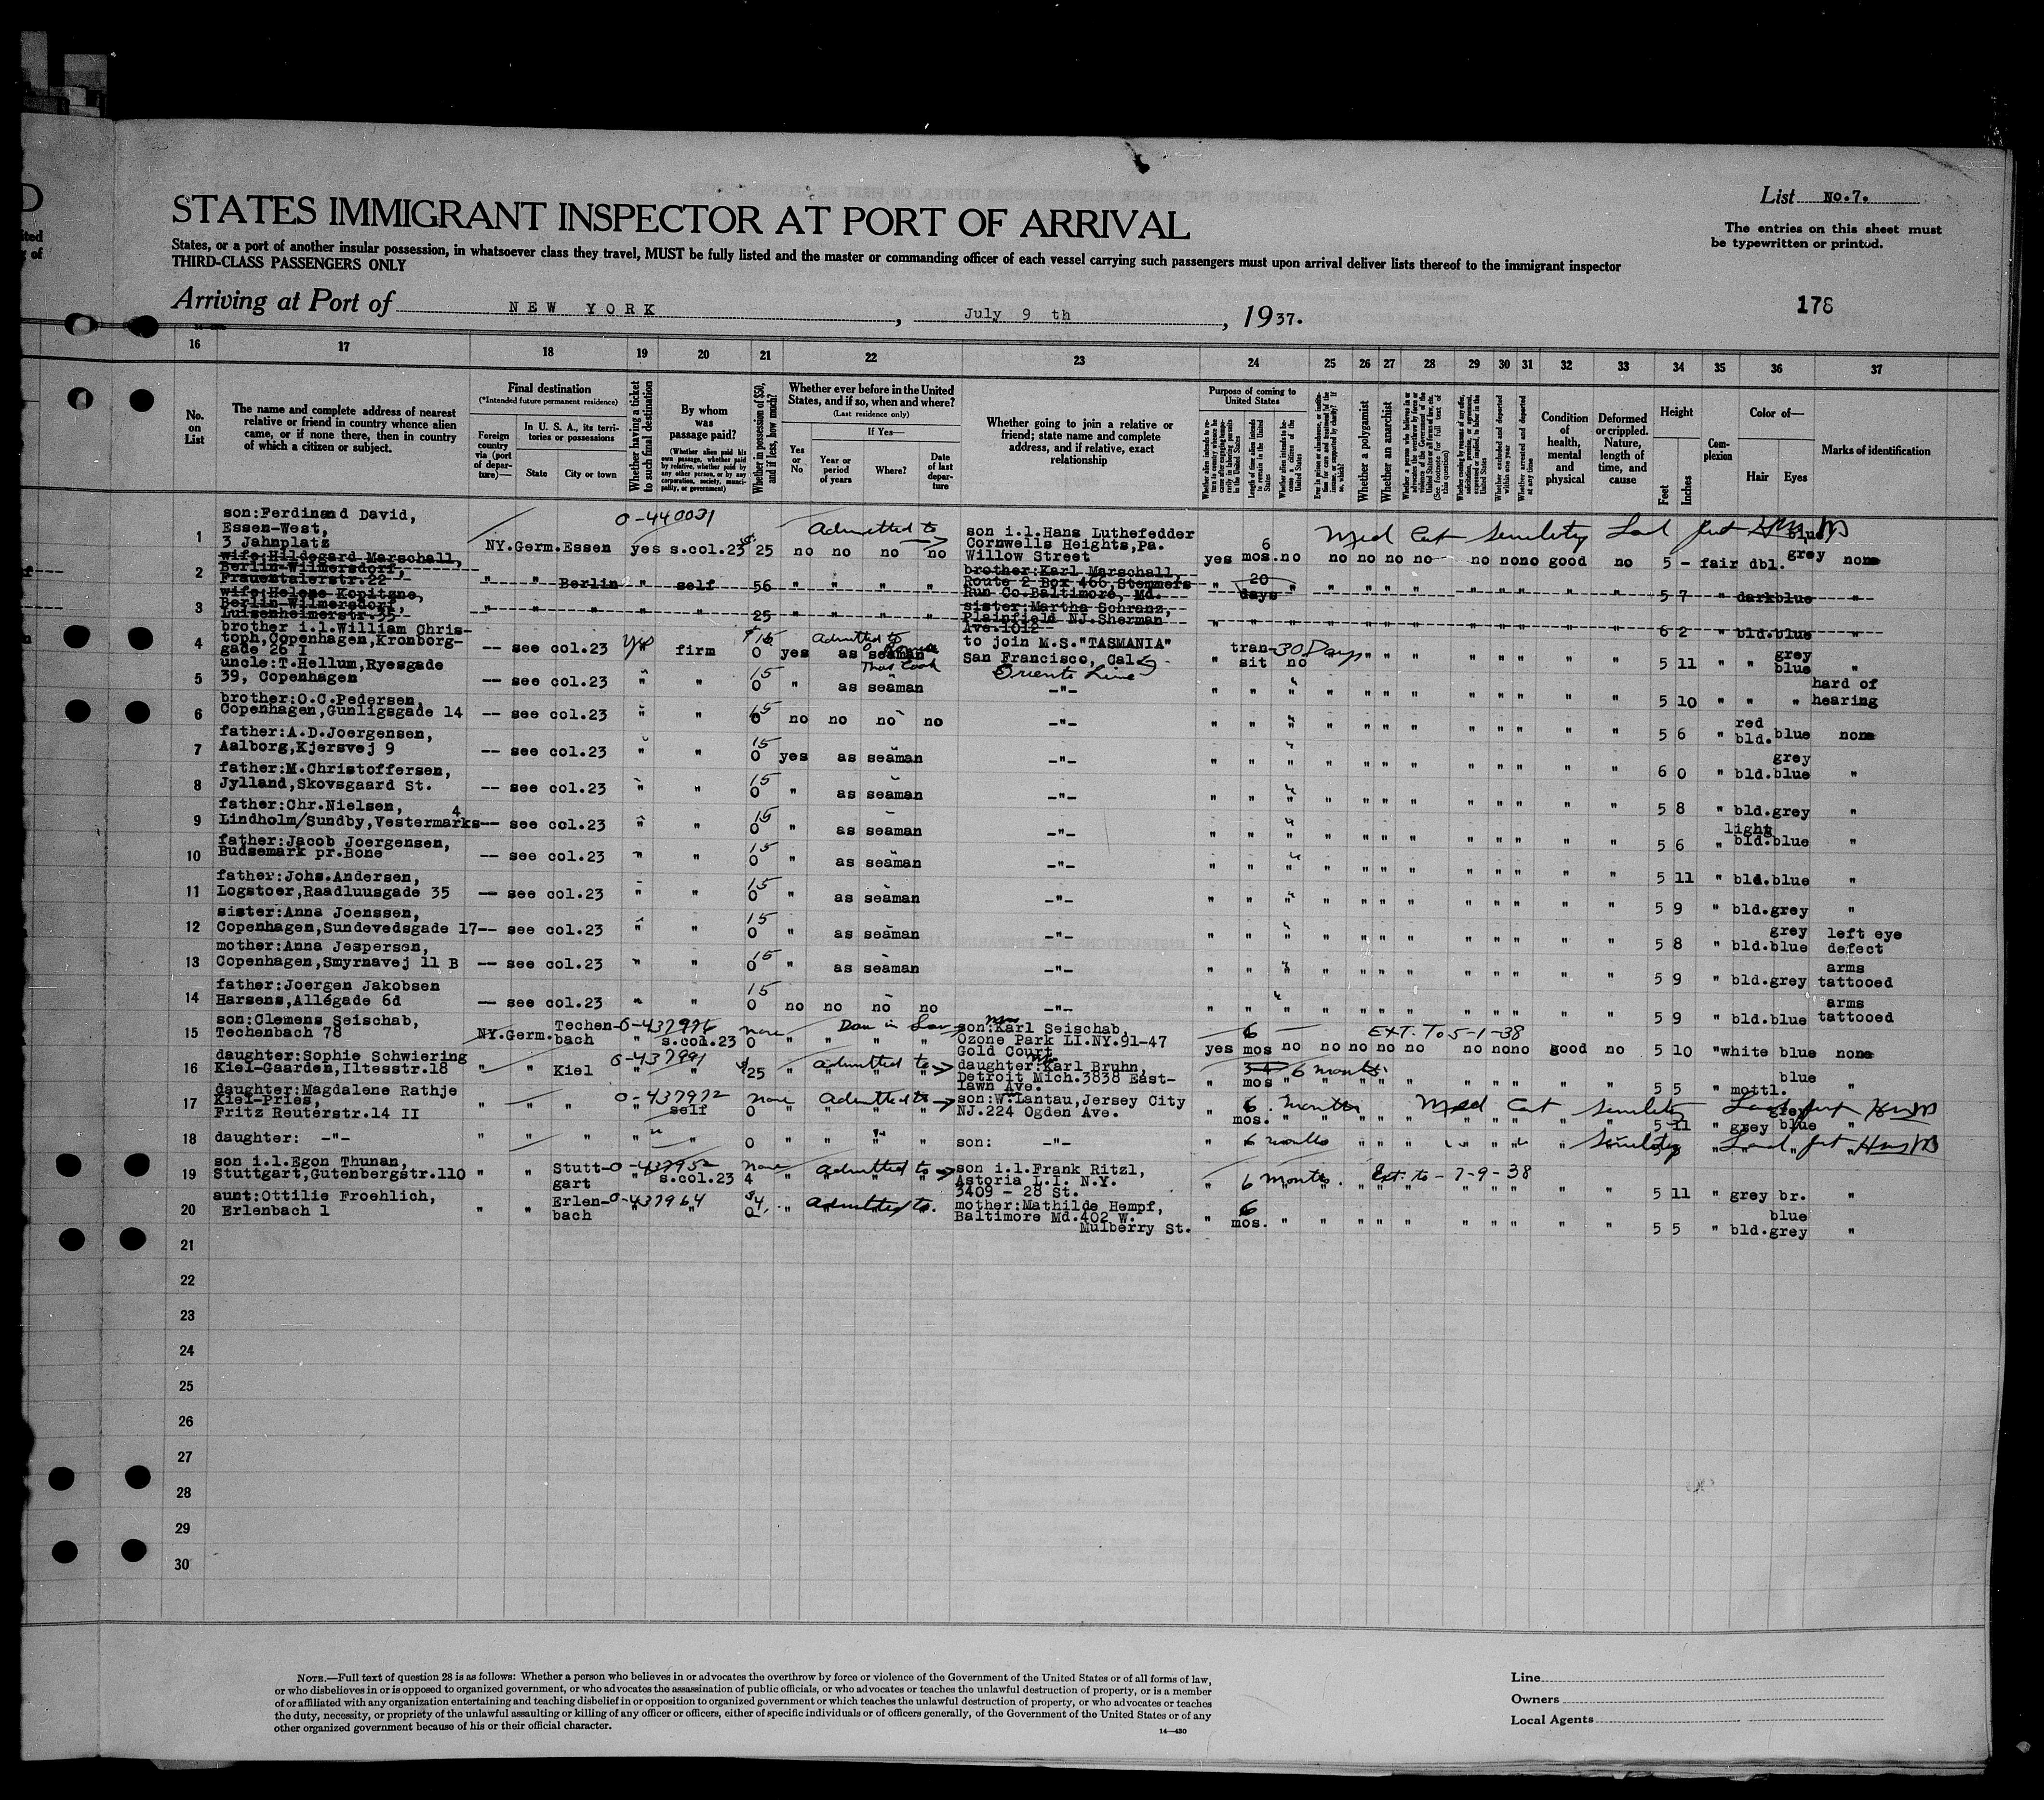 D
ited
of
List No.7.
STATES IMMIGRANT INSPECTOR AT PORT OF ARRIVAL
The entries on this sheet must
be typewritten or printed.
States, or a port of another insular possession, in whatsoever class they travel, MUST be fully listed and the master or commanding officer of each vessel carrying such passengers must upon arrival deliver lists thereof to the immigrant inspector
THIRD-CLASS PASSENGERS ONLY
Arriving at Port of NEW YORK, July 9 th, 1937.
178
16 17 18 19 20 21 22 23 24 25 26 27 28 29 30 31 32 33 34 35 36 37
No. on List
The name and complete address of nearest relative or friend in country whence alien came, or if none there, then in country of which a citizen or subject.
Final destination
(*Intended future permanent residence)
Foreign country via (port of departure)—
In U. S. A., its territories or possessions
State
City or town
Whether having a ticket to such final destination
By whom was passage paid?
(Whether alien paid his own passage, whether paid by relative, whether paid by any other person, or by any corporation, society, municipality, or government)
Whether in possession of $50, and if less, how much?
Whether ever before in the United States, and if so, when and where?
(Last residence only)
Yes or No
If Yes—
Year or period of years
Where?
Date of last departure
Whether going to join a relative or friend; state name and complete address, and if relative, exact relationship
Purpose of coming to United States
Length of time alien intends to remain in the United States
Whether alien intends to become a citizen of the United States
Whether a polygamist
Whether an anarchist
Whether excluded and deported within one year
Whether arrested and deported at any time
Condition of health, mental and physical
Deformed or crippled. Nature, length of time, and cause
Height
Feet
Inches
Complexion
Color of—
Hair
Eyes
Marks of identification
1 son:Ferdinand David, Essen-West, 3 Jahnplatz NY.Germ.Essen 0-440031 yes s.col.23 25 no no no no Admitted to son i.l.Hans Luthefedder Cornwells Heights,Pa. Willow Street yes 6 mos. no no no no no no no no good no 5 - fair dbl. blue grey none
Med Cert Senility
2 wife:Hildegard Marschall, Berlin-Wilmersdorf, Frauentalerstr.22 " " Berlin " self 56 " " " " brother:Karl Marschall, Route 2 Box 466,Stemmers Run Co.Baltimore, Md. " 20 days " " " " " " " " " " 5 7 " dark blue "
3 wife:Helene Kopitgne, Berlin-Wilmersdorf, Luisenheimerstr.35 " " " " " 25 " " " " sister:Martha Schranz, Plainfield NJ.Sherman Ave.1012 " " " " " " " " " " " " 6 2 " bld.blue "
4 brother i.l.William Christoph,Copenhagen,Kronborggade 26 I -- see col.23 yes firm $15 0 yes as seaman Admitted to Thos Cook to join M.S."TASMANIA" San Francisco, Cal. Oriente Line " transit 30 Days no " " " " " " " " " 5 11 " " grey blue "
5 uncle:T.Hellum,Ryesgade 39, Copenhagen -- see col.23 " " 15 0 " as seaman -"- " " " " " " " " " " " " 5 10 " " " hard of hearing
6 brother:O.C.Pedersen, Copenhagen,Gunligsgade 14 -- see col.23 " " 15 0 no no no no -"- " " " " " " " " " " " " 5 6 " red bld. blue none
7 father:A.D.Joergensen, Aalborg,Kjersvej 9 -- see col.23 " " 15 0 yes as seaman -"- " " " " " " " " " " " " 6 0 " bld. grey blue "
8 father:M.Christoffersen, Jylland,Skovsgaard St. -- see col.23 " " 15 0 " as seaman -"- " " " " " " " " " " " " 5 8 " bld.grey "
9 father:Chr.Nielsen, Lindholm/Sundby,Vestermarks 4 -- see col.23 " " 15 0 " as seaman -"- " " " " " " " " " " " " 5 6 " light bld.blue "
10 father:Jacob Joergensen, Budsemark pr.Bone -- see col.23 " " 15 0 " as seaman -"- " " " " " " " " " " " " 5 11 " bld.blue "
11 father:Johs.Andersen, Logstoer,Raadluusgade 35 -- see col.23 " " 15 0 " as seaman -"- " " " " " " " " " " " " 5 9 " bld.grey "
12 sister:Anna Joenssen, Copenhagen,Sundevedsgade 17-- see col.23 " " 15 0 " as seaman -"- " " " " " " " " " " " " 5 8 " bld. grey blue left eye defect
13 mother:Anna Jespersen, Copenhagen,Smyrnavej 11 B -- see col.23 " " 15 0 " as seaman -"- " " " " " " " " " " " " 5 9 " bld.grey arms tattooed
14 father:Joergen Jakobsen Harsens,Allégade 6d -- see col.23 " " 15 0 no no no no -"- " " " " " " " " " " " " 5 9 " bld.blue arms tattooed
15 son:Clemens Seischab, Techenbach 78 NY.Germ. Techenbach 0-437996 " s.col.23 none 0 " " " " son:Karl Seischab, Ozone Park LI.NY.91-47 Gold Court yes 6 mos no no no no no no no no good no 5 10 " white blue none
EXT. To 5-1-38
16 daughter:Sophie Schwiering Kiel-Gaarden,Iltesstr.18 " " Kiel 0-437991 " " $25 " " " " Admitted to daughter:Karl Bruhn, Detroit Mich.3838 Eastlawn Ave. " mos 6 months " " " " " " " " " 5 5 " mottl. blue "
17 daughter:Magdalene Rathje Kiel-Pries, Fritz Reuterstr.14 II " " " 0-437972 " self none 0 " " " " Admitted to son:W.Lantau,Jersey City NJ.224 Ogden Ave. " 6 mos. months " " " " " " " " " 5 11 " grey blue "
Med Cert Senility
18 daughter: -"- " " " " " 0 " " " " son: -"- " 6 months " " " " " " " Senility
19 son i.l.Egon Thunan, Stuttgart,Gutenbergstr.110 " " Stuttgart 0-437952 s.col.23 none 4 " " " " Admitted to son i.l.Frank Ritzl, Astoria L.I. N.Y. 3409 - 28 St. " 6 months. Ext. to - 7-9-38 " " " " " " " " " 5 11 " grey br. "
20 aunt:Ottilie Froehlich, Erlenbach 1 " " Erlenbach 0-437964 " " $4. 0 " " " " Admitted to. mother:Mathilde Hempf, Baltimore Md.402 W. Mulberry St. " 6 mos. " " " " " " " " " " 5 5 " bld. blue grey "
21
22
23
24
25
26
27
28
29
30
NOTE.—Full text of question 28 is as follows: Whether a person who believes in or advocates the overthrow by force or violence of the Government of the United States or of all forms of law,
or who disbelieves in or is opposed to organized government, or who advocates the assassination of public officials, or who advocates or teaches the unlawful destruction of property, or is a member
of or affiliated with any organization entertaining and teaching disbelief in or opposition to organized government or which teaches the unlawful destruction of property, or who advocates or teaches
the duty, necessity, or propriety of the unlawful assaulting or killing of any officer or officers, either of specific individuals or of officers generally, of the Government of the United States or of any
other organized government because of his or their official character.
14—430
Line
Owners
Local Agents